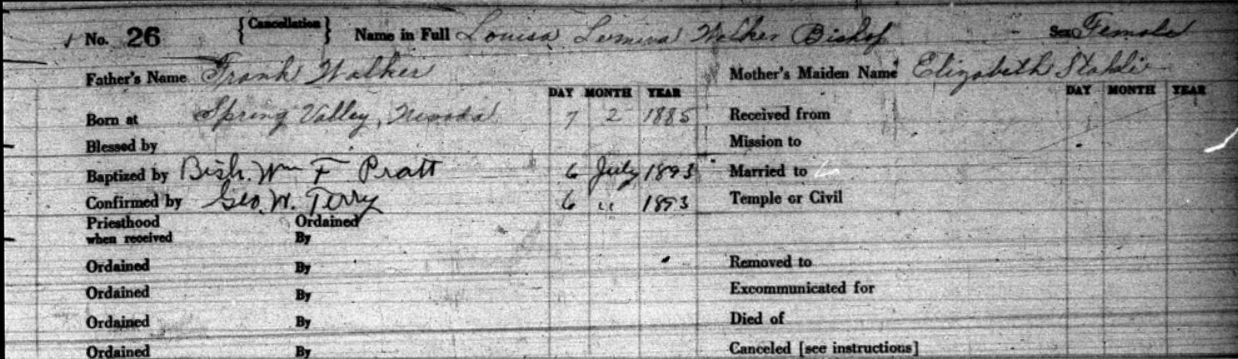 No. 26 {Cancellation} Name in Full Louisa Lumira Walker Bishop Sex Female
Father's Name Frank Walker Mother's Maiden Name Elizabeth Stahli
DAY MONTH YEAR DAY MONTH YEAR
Born at Spring Valley, Nevada 7 2 1885 Received from
Blessed by Mission to
Baptized by Bish. Wm F Pratt 6 July 1893 Married to
Confirmed by Geo. W. Terry 6 " 1893 Temple or Civil
Priesthood Ordained
when received By
Ordained By Removed to
Ordained By Excommunicated for
Ordained By Died of
Ordained By Canceled [see instructions]